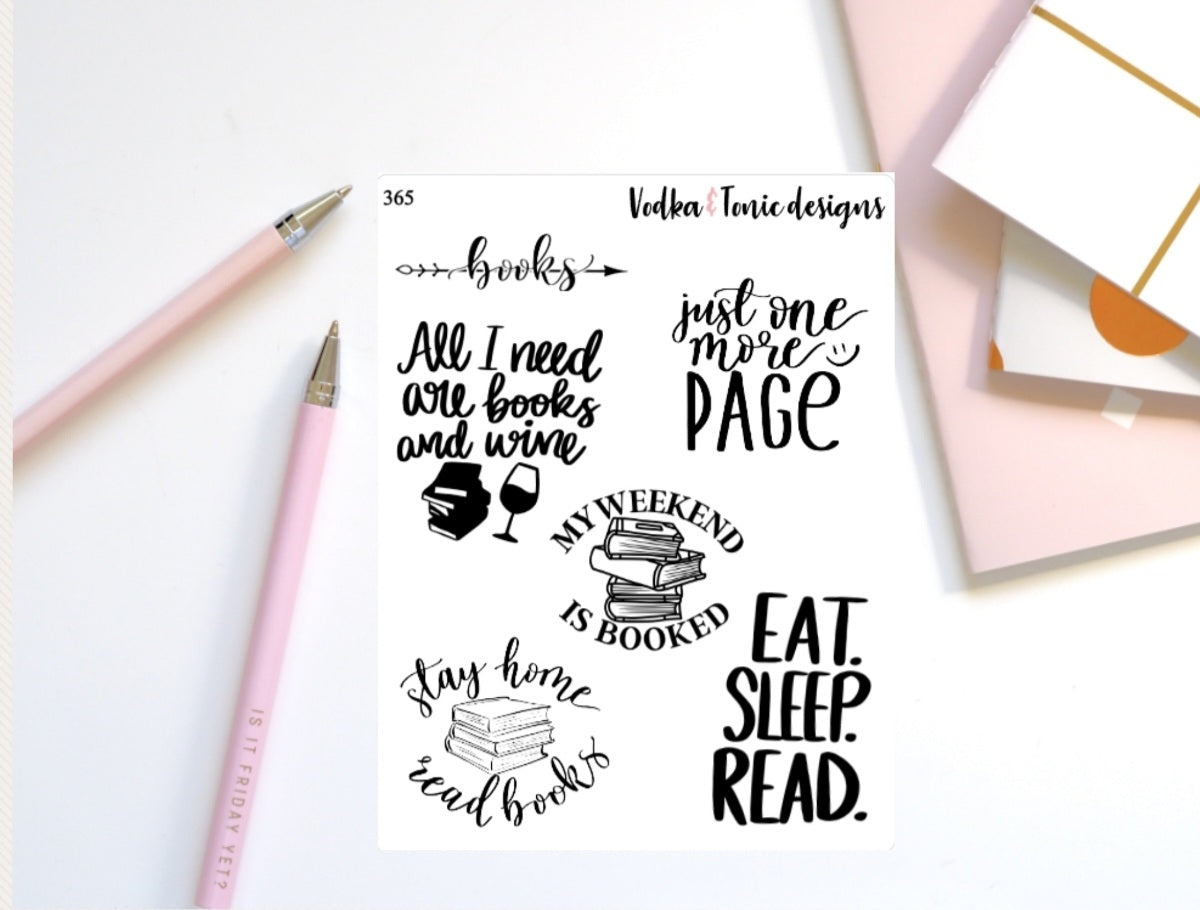 365
Vodka & Tonic designs
books
All I need
are books
and wine
just one
more
PAGE
MY WEEKEND
IS BOOKED
stay home
read books
EAT.
SLEEP.
READ.
IS IT FRIDAY YET?